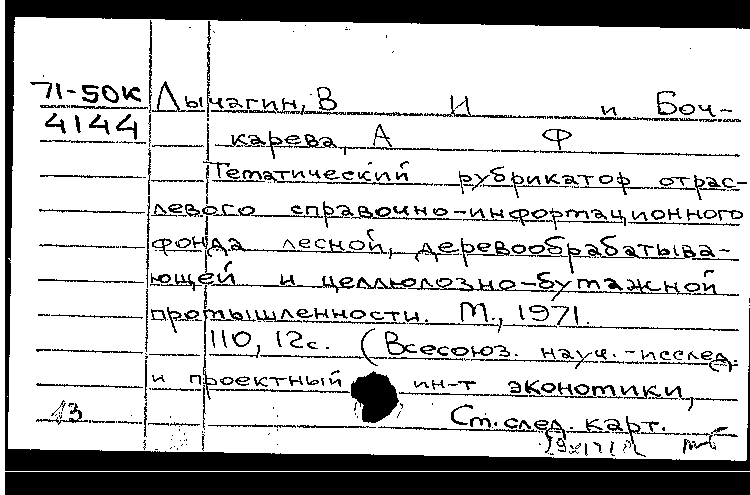 71-50К Лычагин, В И и Боч-
4144 карева, А Ф
Тематический рубрикатор отрас-
левого справочно-информационного
фонда лесной, деревообрабатыва-
ющей и целлюлозно-бумажной
промышленности. М., 1971.
110, 12с. (Всесоюз. науч.-исслед.
и проектный ин-т экономики,
13 См. след. карт.